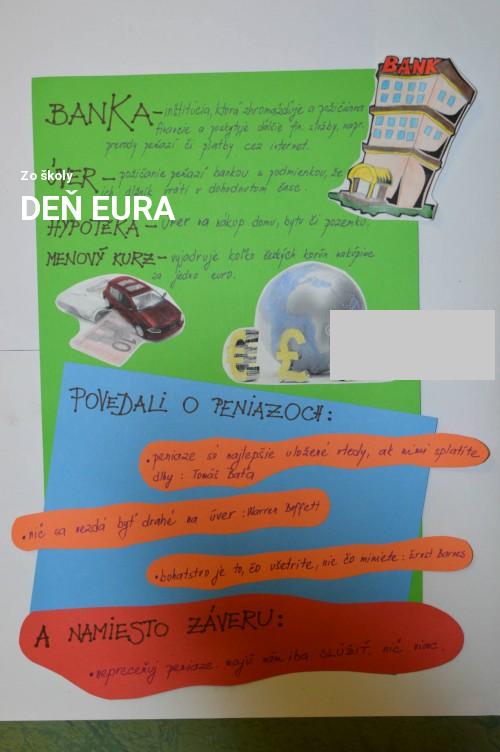 BANK
BANKA - inštitúcia, ktorá zhromažďuje a požičiava
financie a poskytuje ďalšie fin. služby, napr.
prevody peňazí či platby cez internet.
Zo školy
ÚVER - požičanie peňazí bankou s podmienkou, že
ich dlžník vráti v dohodnutom čase.
DEŇ EURA
HYPOTÉKA - úver na nákup domu, bytu či pozemku.
MENOVÝ KURZ - vyjadruje koľko českých korún nakúpime
za jedno euro.
POVEDALI O PENIAZOCH:
• peniaze sú najlepšie uložené vtedy, ak nimi splatíte
dlhy : Tomáš Baťa
• nič sa nezdá byť drahé na úver : Warren Buffett
• bohatstvo je to, čo ušetríte, nie čo miniete : Ernst Barnes
A NAMIESTO ZÁVERU:
• nepreceňuj peniaze. majú nám iba SLÚŽIŤ. nič viac.